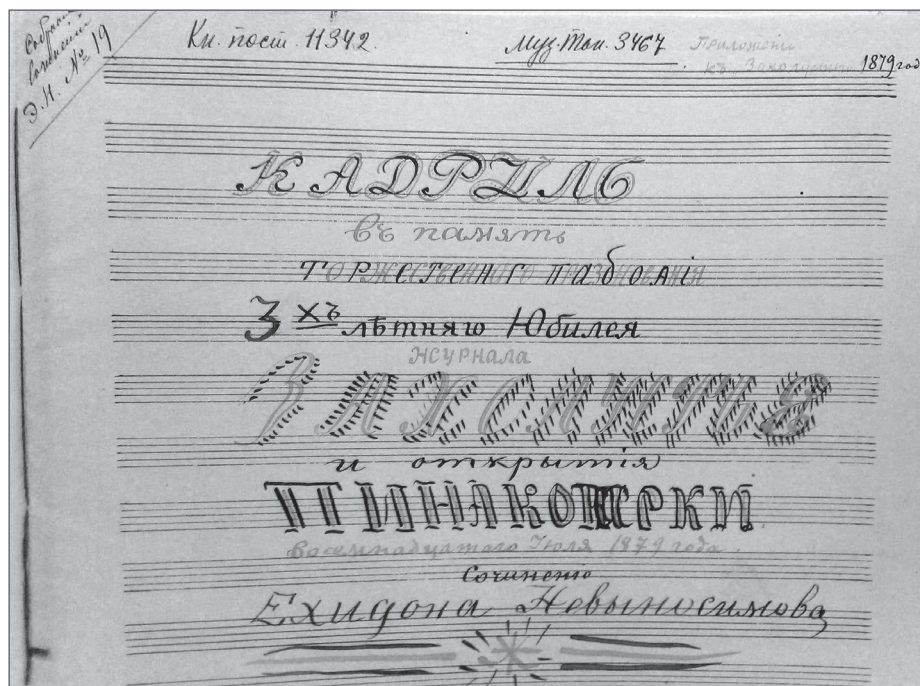 Собраніе
сочиненій
Э. Н. № 19
Кн. пост. 11342.
Муз. Топ. 3467
Приложеніе
къ Захолустью 1879 год
КАДРИЛЬ
въ память
торжественнаго празднованія
3хъ лѣтняго Юбилея
журнала
ЗАХОЛУСТЬЯ
и открытія
ПИНАКОТЕКИ
восемнадцатаго Іюля 1879 года.
Сочиненіе
Ехидона Невыносимова